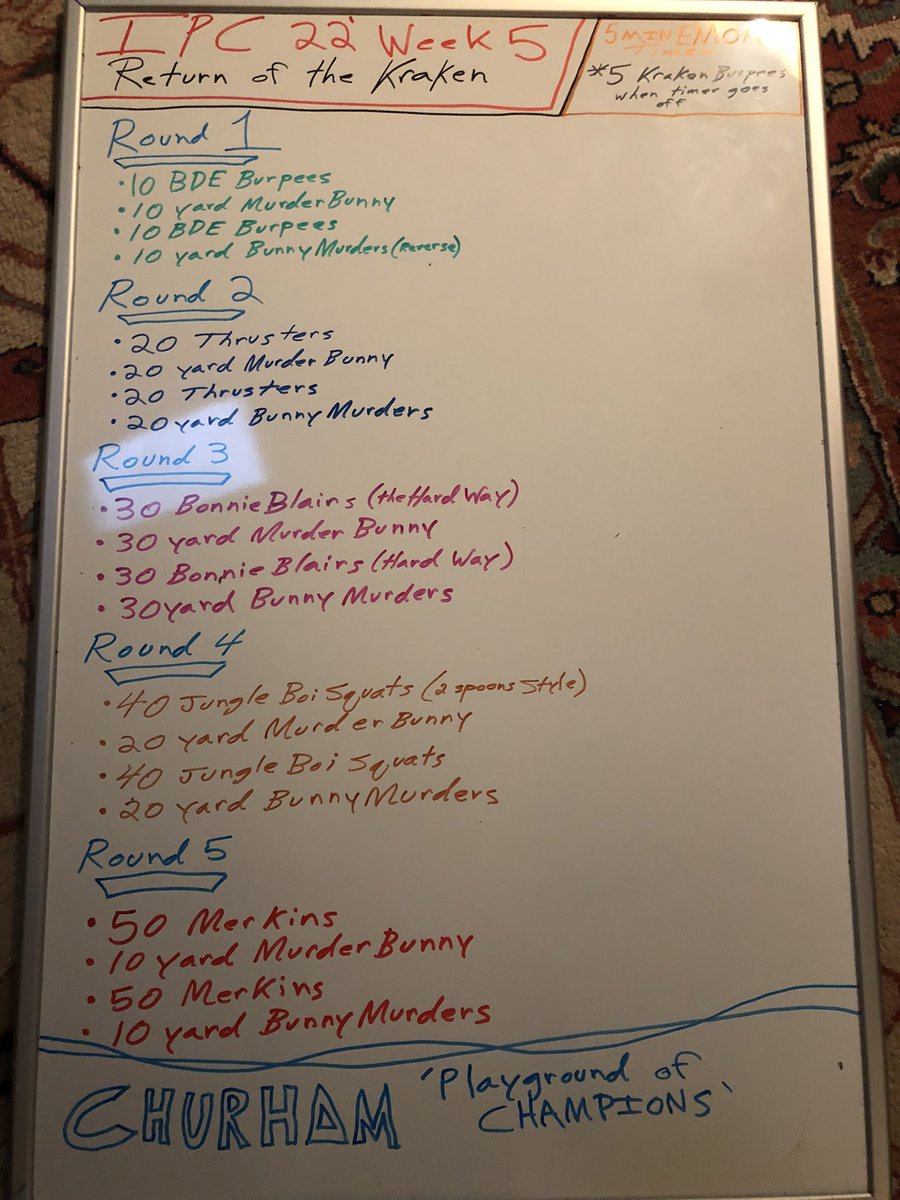 IPC 22' Week 5
Return of the Kraken
5 MIN EMOM
Timer
*5 Kraken Burpees
when timer goes
off
Round 1
• 10 BDE Burpees
• 10 yard Murder Bunny
• 10 BDE Burpees
• 10 yard Bunny Murders (Reverse)
Round 2
• 20 Thrusters
• 20 yard Murder Bunny
• 20 Thrusters
• 20 yard Bunny Murders
Round 3
• 30 Bonnie Blairs (the Hard Way)
• 30 yard Murder Bunny
• 30 Bonnie Blairs (Hard Way)
• 30 yard Bunny Murders
Round 4
• 40 Jungle Boi Squats (2 spoons Style)
• 20 yard Murder Bunny
• 40 Jungle Boi Squats
• 20 yard Bunny Murders
Round 5
• 50 Merkins
• 10 yard Murder Bunny
• 50 Merkins
• 10 yard Bunny Murders
CHURHAM
'Playground of
CHAMPIONS'